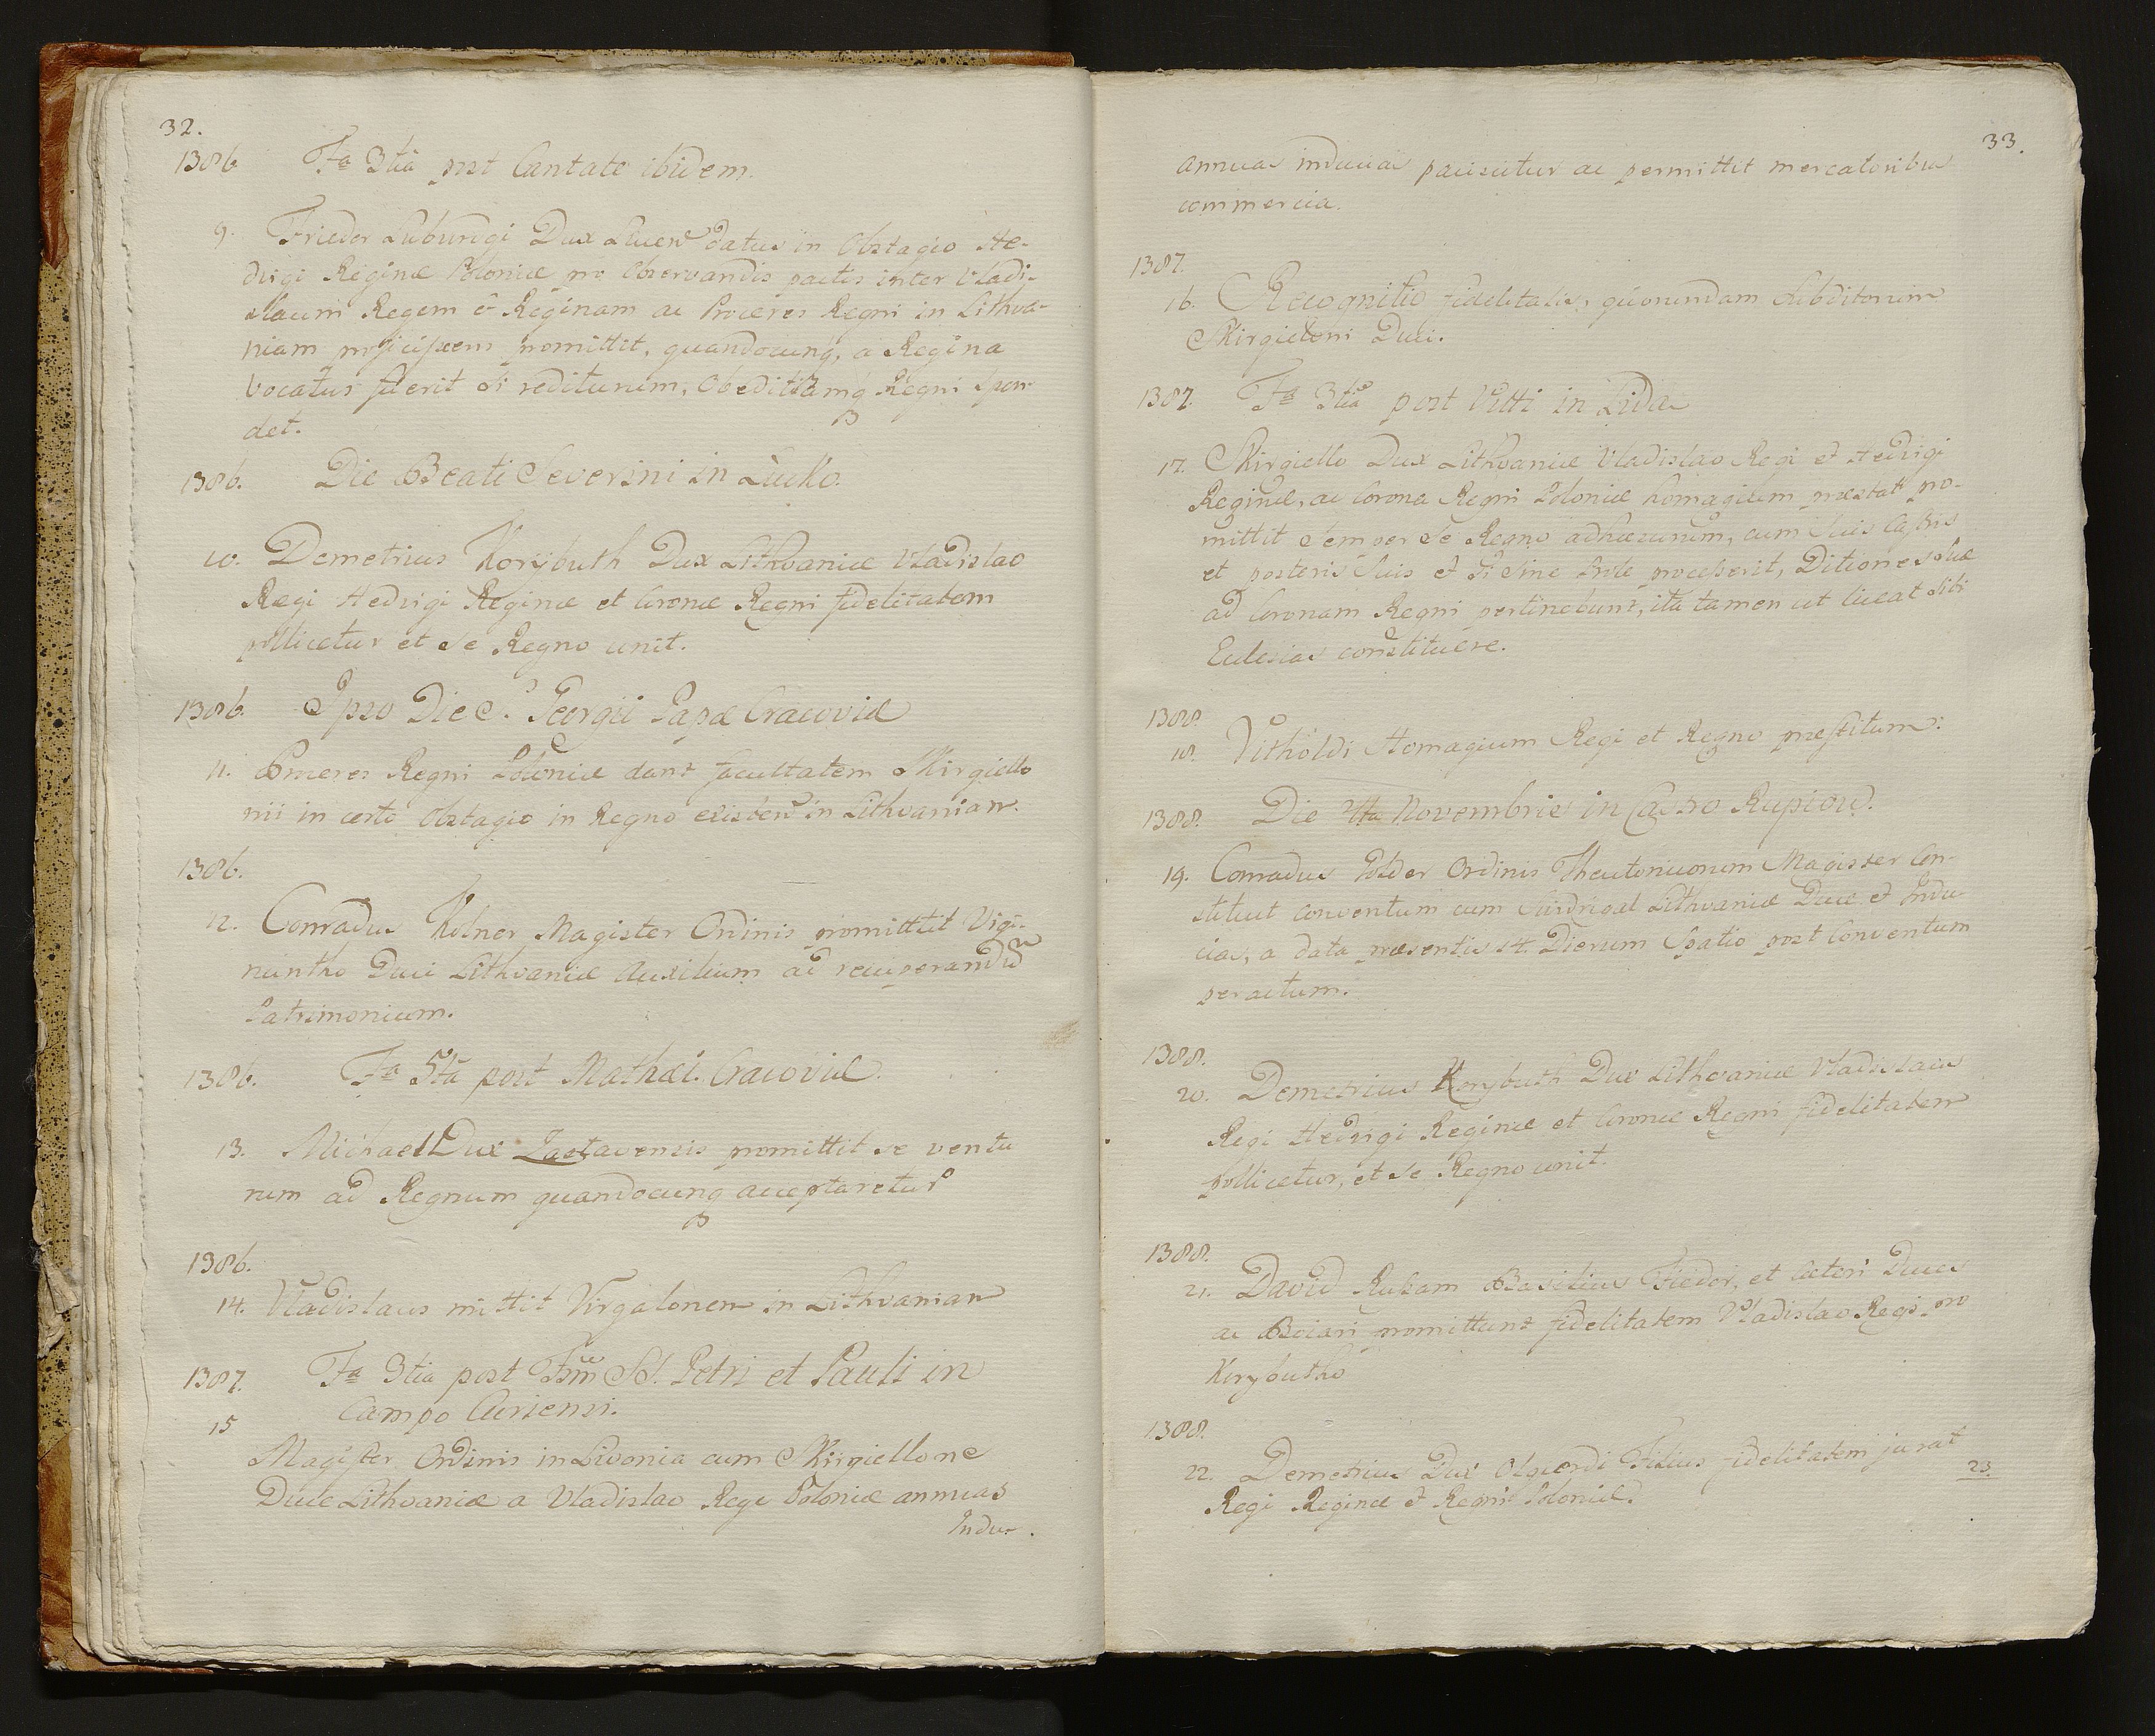 32.
1386. Fa 3tia post Cantate ibidem.
9. Frieder Luburigi Dux Lucen datus in Obstagio He-
dvigi Reginæ Poloniæ pro Observandis pactis inter Vladi-
slaum Regem & Reginam ac Proceres Regni in Lithva-
niam promittit, quandocunq, a Regina
vocatus fuerit Se rediturum, Obedit Regni spon
det.
1386. Die Beati Severini in Lucko.
10. Demetrius Korybuth Dux Lithvaniæ Vladislao
Regi Hedvigi Reginæ et Coronæ Regni fidelitatem
pollicetur et se Regno unit.
1386. Ipso Die S. Georgii Papæ Cracoviæ
11. Proceres Regni Poloniæ dant facultatem Skirgiello
nii in certo Obstagio in Regno existen in Lithvaniam.
1386.
12. Conradus Kolner Magister Ordinis promittit Vigi-
nuntho Duci Lithvaniæ Auxilium ad recuperandu
Patrimonium.
1386. Fa 5ta post Mathæi Cracoviæ.
13. Michael Dux Zaslavensis promittit se ventu
rum ad Regnum quandocunq acceptaretur
1386.
14. Vladislaus mittit Virgalonem in Lithvaniam
1387. Fa 3tia post Fsm SS. Petri et Pauli in
Campo Curiensi.
15
Magister Ordinis in Livonia cum Skirgiellone
Duce Lithvaniæ a Vladislao Rege Poloniæ annuas
Indu-
33.
annuas inducias paciscitur ac permittit mercatoribus
commercia.
1387.
16. Recognitio fidelitatis, quorundam Subditorum
Skirgieloni Duci.
1387. Fa 3tia post Vitti in Lida
17. Skirgiello Dux Lithvaniæ Vladislao Regi et Hedvigi
Reginæ, ac Corona Regni Poloniæ homagium præstat pro-
mittit Semper se Regno adhæsurum, cum Suis Castris
et posteris Suis et Si Sine Prole processerit, Ditiones Suæ
ad Coronam Regni pertinebunt, ita tamen ut liceat Sibi
Ecclesias constituere.
1388.
18. Vitholdi Homagium Regi et Regno præstitum.
1388. Die 4ta Novembris in Castro Rupiow.
19. Conradus Zolder Ordinis Theutonicorum Magister Con-
stituit conventum cum Suidrigal Lithvaniæ Duce et Indu
cias, a data præsentis 14. Dierum Spatio post Conventum
peractum.
1388.
20. Demetrius Korybuth Dux Lithvaniæ Vladislaus
Regi Hedvigi Reginæ et Coronæ Regni fidelitatem
pollicetur, et se Regno unit.
1388.
21. David Rusam Basilius Fiedor, et Cæteri Duces
ac Boiari promittunt fidelitatem Vladislao Regi pro
Korybutho
1388.
22. Demetrius Dux Olgierdi Filius fidelitatem jurat
Regi Reginæ et Regni Poloniæ.
23.